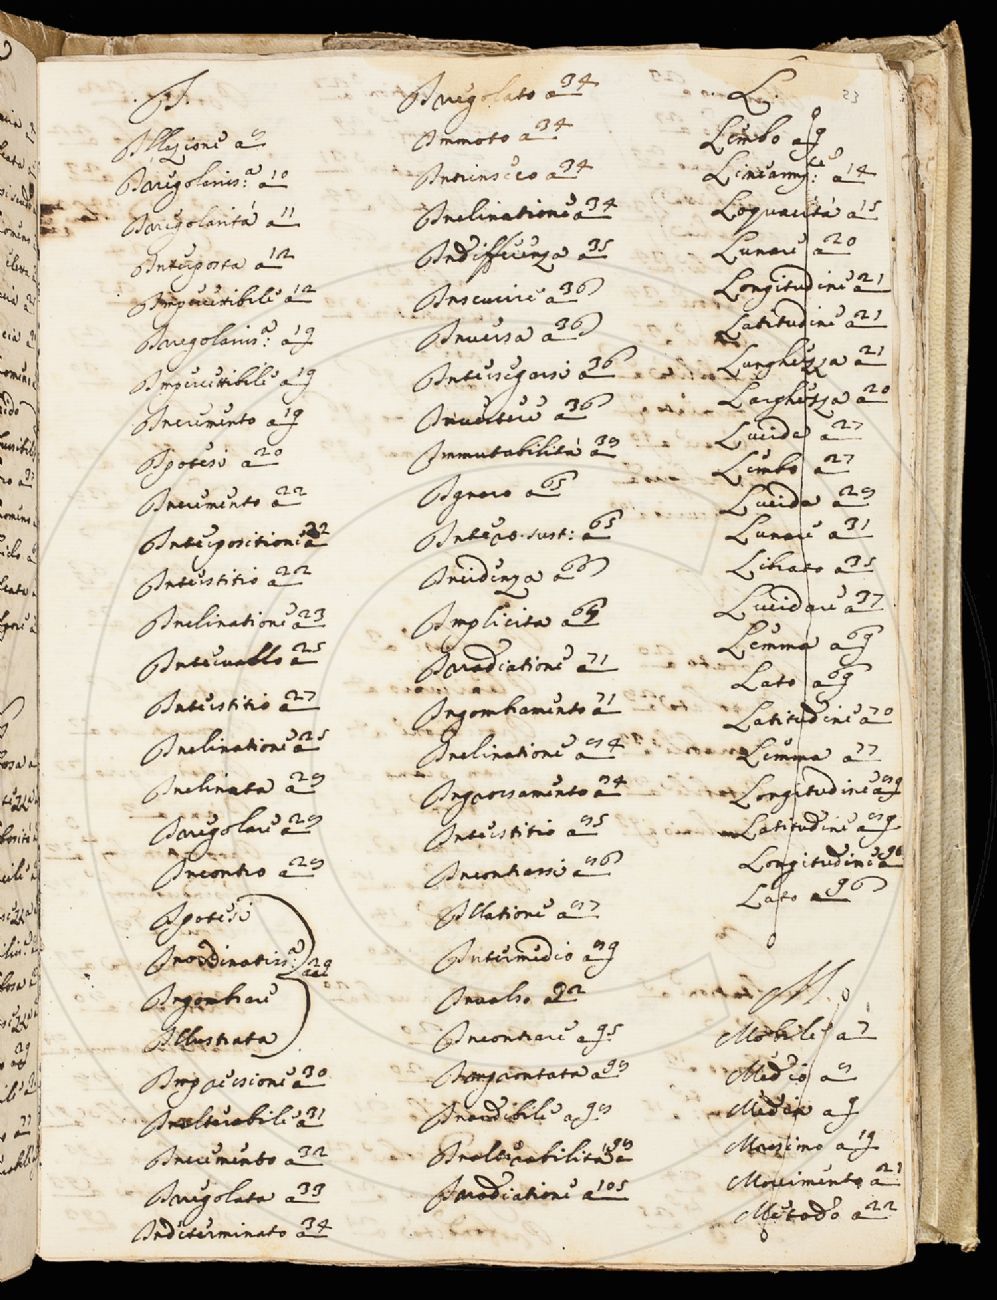 I.
Illazione a 9
Iregolariss:a a 10
Iregolarità a 11
Interposta a 12
Impercetibile a 12
Iregolariss:a a 19
Impercetibile a 19
Incremento a 19
Ipotesi a 20
Incremento a 22
Interpositione a 22
Interstitio a 22
Inclinatione a 23
Intervallo a 25
Interstitio a 27
Inclinatione a 25
Inclinata a 28
Iregolare a 28
Incontro a 28
Ipotesi
Inordinatiss:a
Ingombrare
Illustrata
29
Impressione a 30
Inalterabile a 31
Incremento a 32
Iregolata a 33
Indeterminato a 34
Iregolato a 34
Immoto a 34
Intrinseco a 34
Inclinatione a 34
Indifferenza a 35
Inserire a 36
Inversa a 36
Intersegarsi a 36
Invertere a 36
Immutabilità a 38
Ignaro a 65
Intero-sust: a 65
Incidenza a 66
Implicita a 69
Iradiatione a 71
Ingombramento a 71
Inclinatione a 84
Ingrossamento a 84
Interstitio a 85
Incontrarsi a 86
Illatione a 87
Intermedio a 89
Invalso a 92
Incontrare a 95
Improntata a 98
Incredibile a 98
Inalterabilità a 98
Iradiatione a 105
L
53
Lembo a 9
Lineamg:le a 14
Loquacità a 15
Lunare a 20
Longitudine a 21
Latitudine a 21
Lunghezza a 21
Larghezza a 20
Lucida a 27
Lembo a 27
Lucida a 28
Lunare a 31
Librato a 35
Lucidare a 37
Lemma a 69
Lato a 69
Latitudine a 70
Lemma a 77
Longitudine a 89
Latitudine a 89
Longitudine a 90
Lato a 96
M
Mobile a 7
Medio a 8
Media a 9
Massimo a 19
Movimento a 21
Metodo a 22